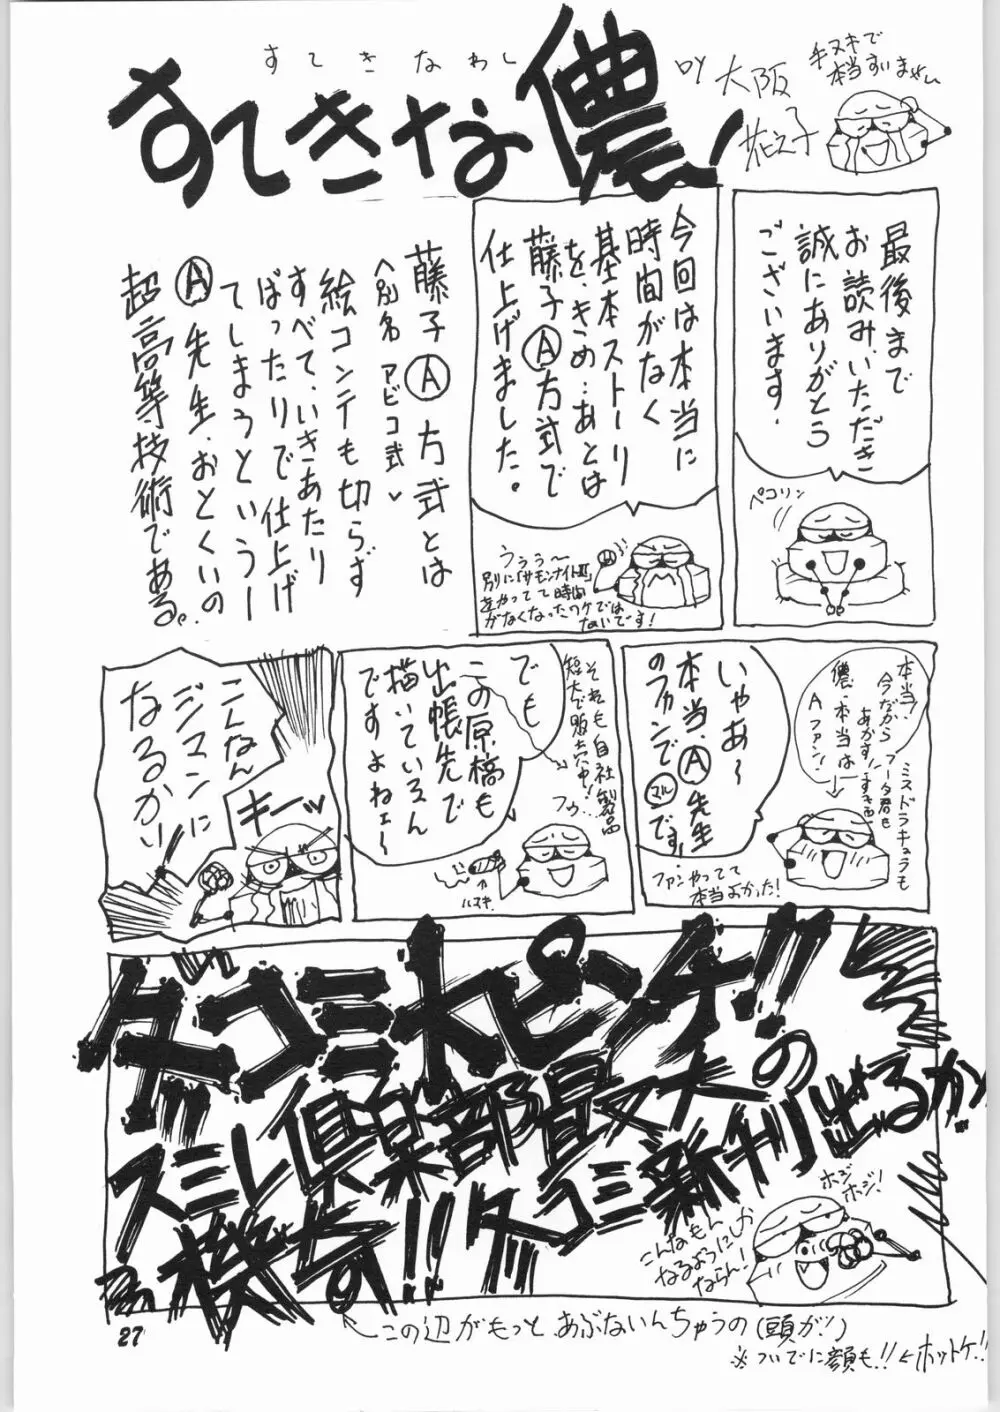 すてきなわし
すてきな儂!
BY 大阪
花之子
手ヌキで
本当すいません
最後まで
お読みいただき
誠にありがとう
ございます.
ペコリン
今回は本当に
時間がなく
基本ストーリー
を、きめ…あとは
藤子Ⓐ方式で
仕上げました。
うぅぅ〜
別に「サモンナイトⅢ」
をやってて時間
がなくなったワケでは
ないです!
藤子Ⓐ方式とは
〈別名 アビコ式〉
絵コンテも切らず
すべて、いきあたり
ばったりで仕上げ
てしまうというー
Ⓐ先生、おとくいの
超高等技術である。
本当、
今だから
あかす!
儂、本当は
Aファン!
フータ君も
すき
ミスドラキュラも
いやあ〜
本当、Ⓐ先生
のファンで㋮です,
ファンやってて
本当よかった!
でも
この原稿も
出張先で
描いているん
ですよねェ〜
それも自社製品
短大で販売中!
フゥ…
ハヌキ
こんなん
ジマンに
なるかい
キーッ
ダーコミ大ピンチ!!
スミレ倶楽部最大の
危機!!
夏コミ新刊出るか
ホジ
ホジ!
こんなもん
なるようにしか
ならん!
この辺がもっと、あぶないんちゃうの(頭が!)
※ついでに顔も!!←ホットケ!!
27